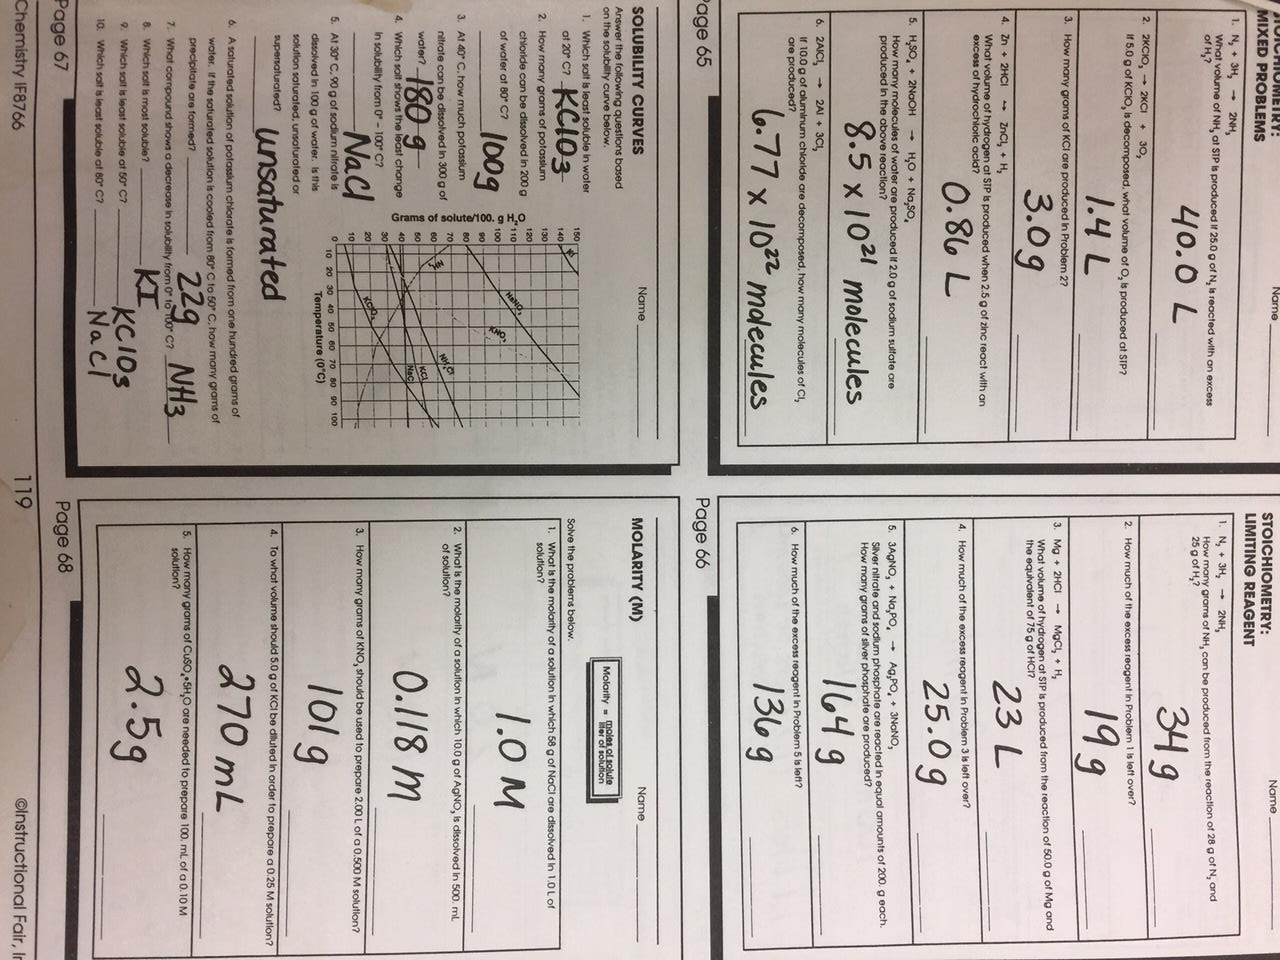 STOICHIOMETRY:
MIXED PROBLEMS
Name
1. N₂ + 3H₂ → 2NH₃
What volume of NH₃ at STP is produced if 25.0 g of N₂ is reacted with an excess
of H₂?
40.0 L
2. 2KClO₃ → 2KCl + 3O₂
If 5.0 g of KClO₃ is decomposed, what volume of O₂ is produced at STP?
1.4 L
3. How many grams of KCl are produced in Problem 2?
3.0g
4. Zn + 2HCl → ZnCl₂ + H₂
What volume of hydrogen at STP is produced when 2.5 g of zinc react with an
excess of hydrochloric acid?
0.86 L
5. H₂SO₄ + 2NaOH → H₂O + Na₂SO₄
How many molecules of water are produced if 2.0 g of sodium sulfate are
produced in the above reaction?
8.5 x 10²¹ molecules
6. 2AlCl₃ → 2Al + 3Cl₂
If 10.0 g of aluminum chloride are decomposed, how many molecules of Cl₂
are produced?
6.77 x 10²² molecules
Page 65
STOICHIOMETRY:
LIMITING REAGENT
Name
1. N₂ + 3H₂ → 2NH₃
How many grams of NH₃ can be produced from the reaction of 28 g of N₂ and
25 g of H₂?
34g
2. How much of the excess reagent in Problem 1 is left over?
19g
3. Mg + 2HCl → MgCl₂ + H₂
What volume of hydrogen at STP is produced from the reaction of 50.0 g of Mg and
the equivalent of 75 g of HCl?
23 L
4. How much of the excess reagent in Problem 3 is left over?
25.0g
5. 3AgNO₃ + Na₃PO₄ → Ag₃PO₄ + 3NaNO₃
Silver nitrate and sodium phosphate are reacted in equal amounts of 200. g each.
How many grams of silver phosphate are produced?
164g
6. How much of the excess reagent in Problem 5 is left?
136g
Page 66
SOLUBILITY CURVES
Name
Answer the following questions based
on the solubility curve below.
1. Which salt is least soluble in water
at 20° C? KClO3
2. How many grams of potassium
chloride can be dissolved in 200 g
of water at 80° C? 100g
3. At 40° C, how much potassium
nitrate can be dissolved in 300 g of
water? 180g
4. Which salt shows the least change
in solubility from 0° - 100° C?
NaCl
5. At 30° C, 90 g of sodium nitrate is
dissolved in 100 g of water. Is this
solution saturated, unsaturated or
supersaturated?
unsaturated
Grams of solute/100. g H₂O
150
140
130
120
110
100
90
80
70
60
50
40
30
20
10
0
10 20 30 40 50 60 70 80 90 100
Temperature (0°C)
KI
NaNO₃
KNO₃
NH₃
NH₄Cl
KCl
NaCl
KClO₃
6. A saturated solution of potassium chlorate is formed from one hundred grams of
water. If the saturated solution is cooled from 80° C to 50° C, how many grams of
precipitate are formed? 22g
7. What compound shows a decrease in solubility from 0° to 100° C? NH3
8. Which salt is most soluble? KI
9. Which salt is least soluble at 50° C? KClO3
10. Which salt is least soluble at 80° C? NaCl
Page 67
MOLARITY (M)
Name
Molarity = moles of solute
liter of solution
Solve the problems below.
1. What is the molarity of a solution in which 58 g of NaCl are dissolved in 1.0 L of
solution?
1.0 M
2. What is the molarity of a solution in which 10.0 g of AgNO₃ is dissolved in 500. mL
of solution?
0.118 M
3. How many grams of KNO₃ should be used to prepare 2.00 L of a 0.500 M solution?
101g
4. To what volume should 5.0 g of KCl be diluted in order to prepare a 0.25 M solution?
270 mL
5. How many grams of CuSO₄•5H₂O are needed to prepare 100. mL of a 0.10 M
solution?
2.5g
Page 68
Chemistry IF8766
119
©Instructional Fair, In